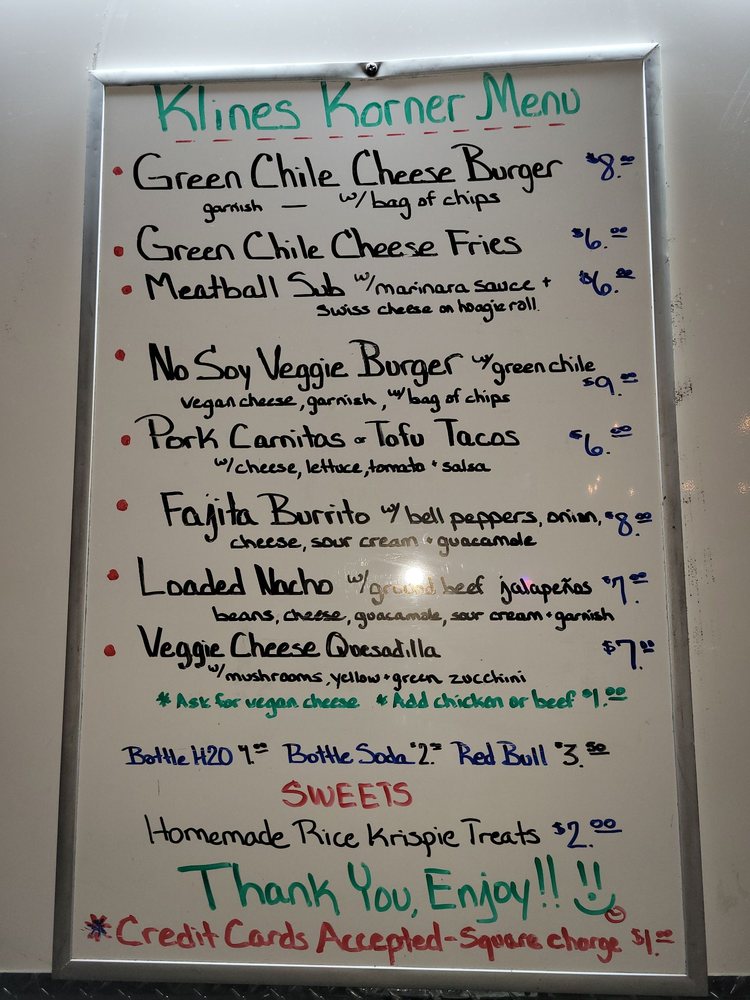 Klines Korner Menu
• Green Chile Cheese Burger $8.00
garnish — w/ bag of chips
• Green Chile Cheese Fries $6.00
• Meatball Sub w/ marinara sauce + $6.00
Swiss cheese on hoagie roll.
• No Soy Veggie Burger w/ green chile
vegan cheese, garnish, w/ bag of chips $9.00
• Pork Carnitas or Tofu Tacos $6.00
w/ cheese, lettuce, tomato + salsa
• Fajita Burrito w/ bell peppers, onion, $8.00
cheese, sour cream + guacamole
• Loaded Nacho w/ ground beef jalapeños $7.00
beans, cheese, guacamole, sour cream + garnish
• Veggie Cheese Quesadilla $7.00
w/ mushrooms, yellow + green zucchini
* Ask for vegan cheese * Add chicken or beef $1.00
Bottle H2O 1.00 Bottle Soda $2.00 Red Bull $3.50
SWEETS
Homemade Rice Krispie Treats $2.00
Thank You, Enjoy!! !!
* Credit Cards Accepted - Square charge $1.00